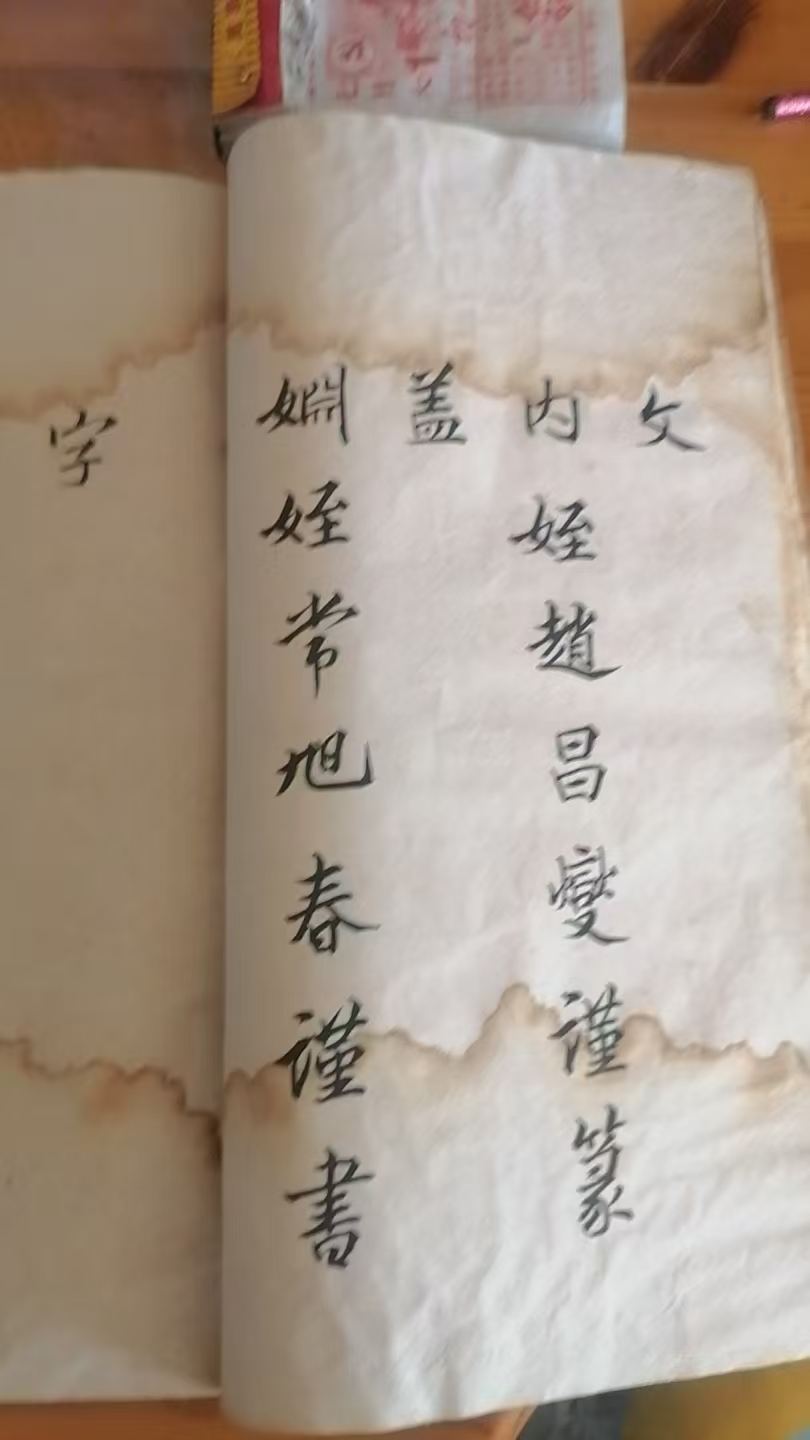 文
内姪趙昌燮謹篆
盖
姻姪常旭春謹書
字